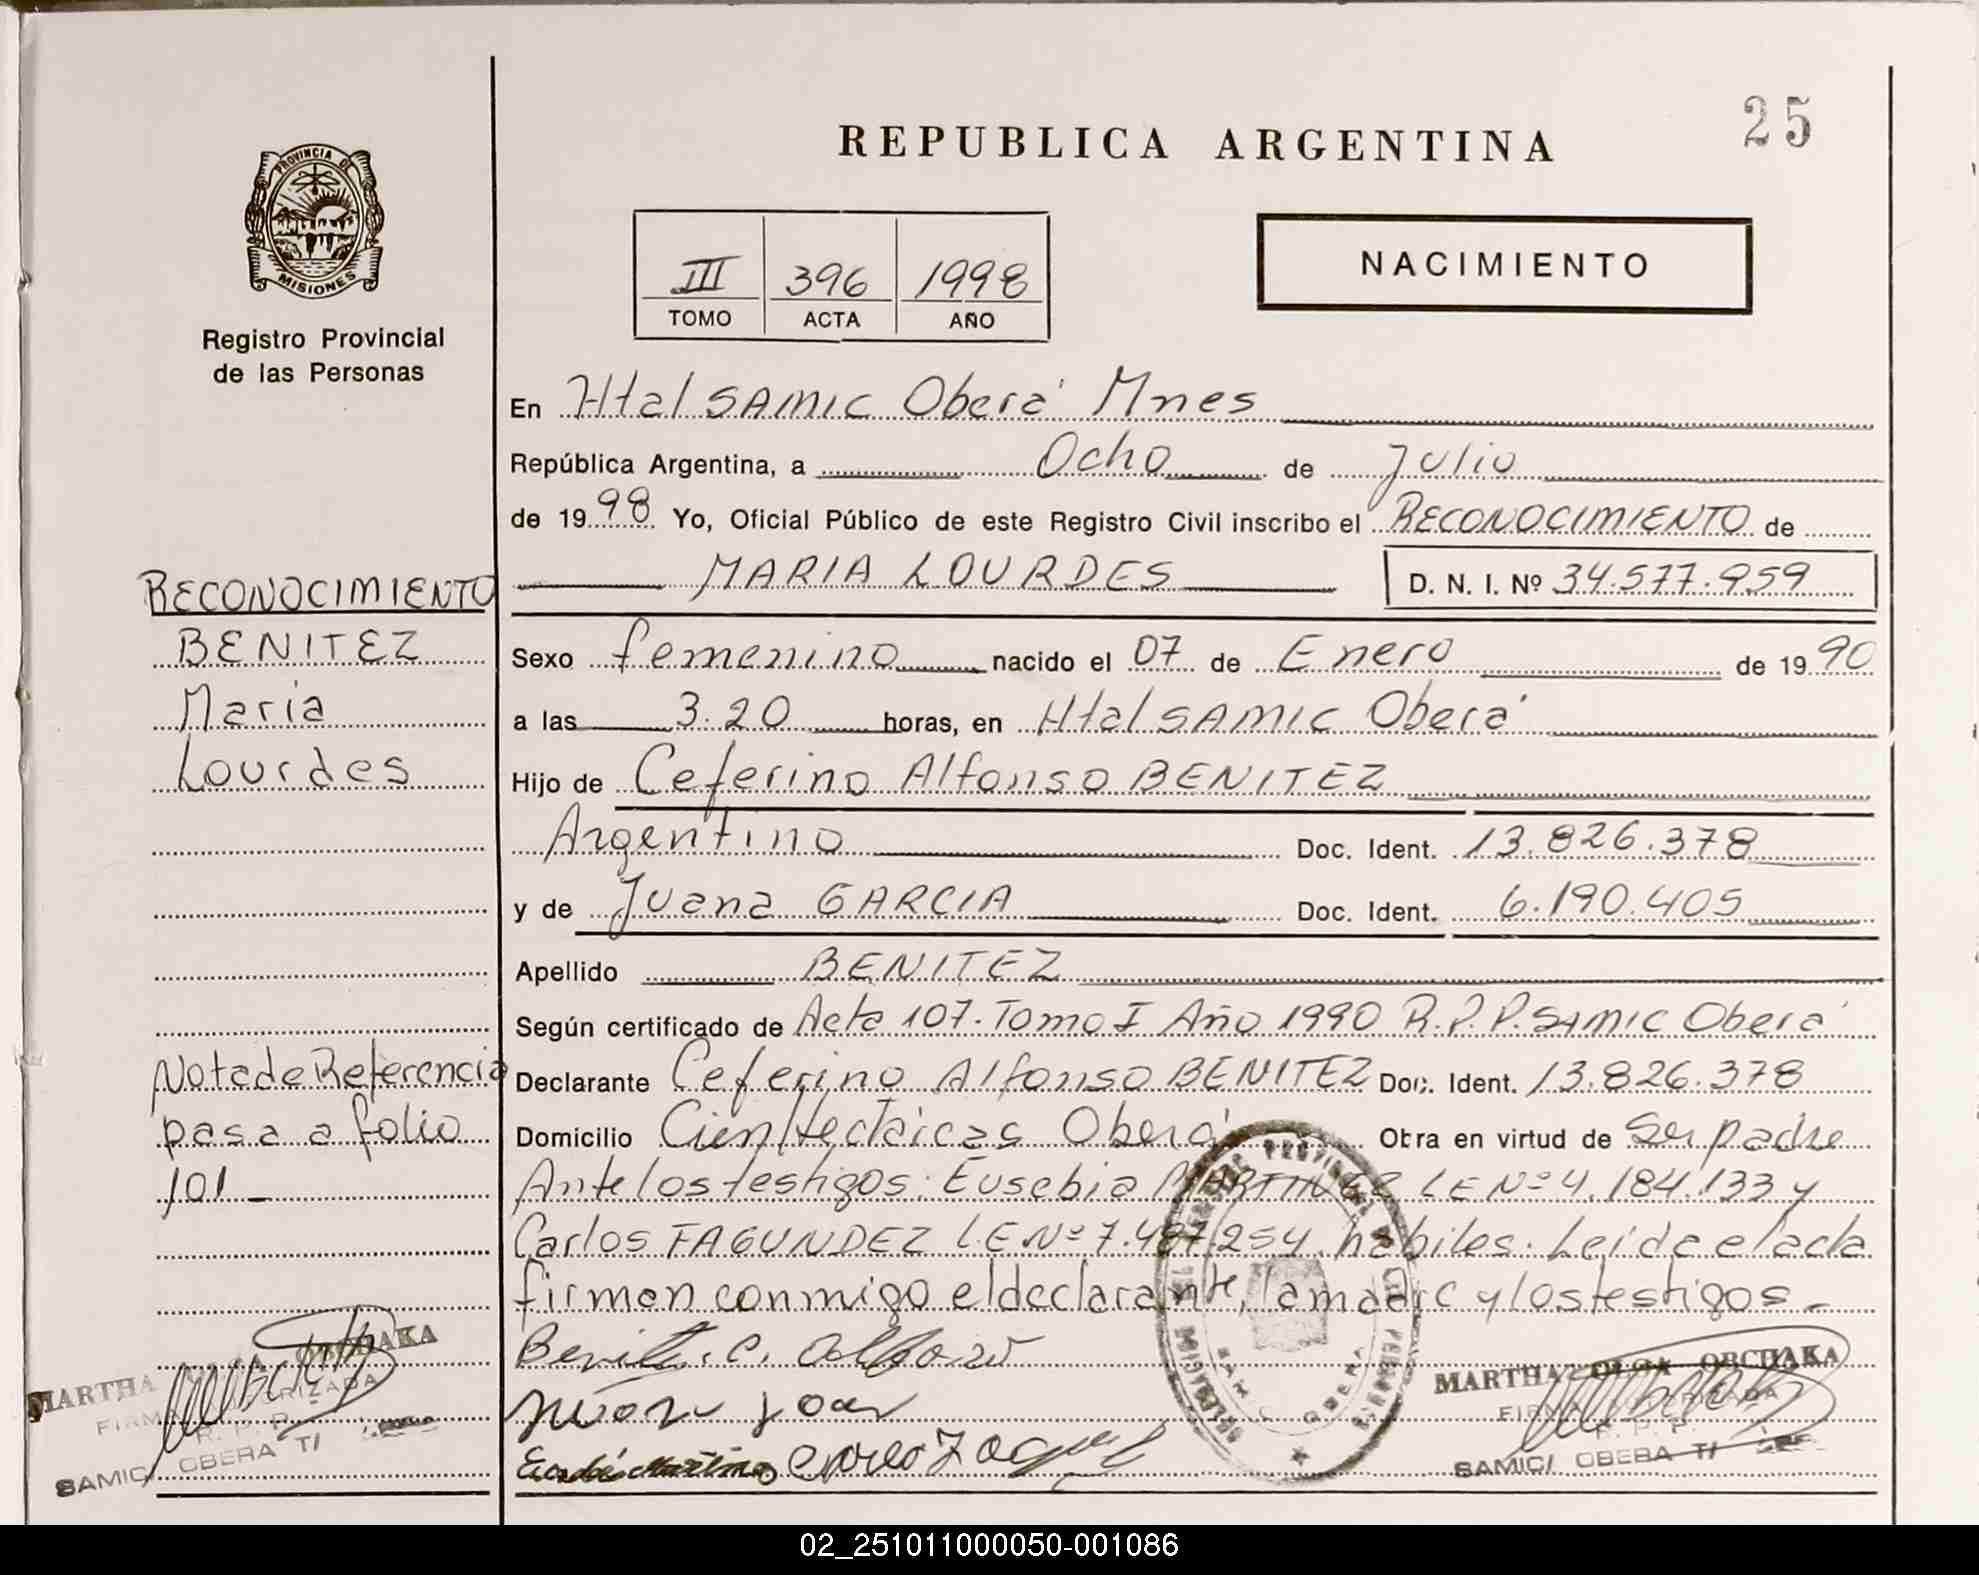 25
REPUBLICA ARGENTINA
PROVINCIA DE
MISIONES
Registro Provincial
de las Personas
III 396 1998
TOMO ACTA AÑO
NACIMIENTO
En Htal SAMIC Oberá Mnes
República Argentina, a Ocho de Julio
de 1998 Yo, Oficial Público de este Registro Civil inscribo el RECONOCIMIENTO de
MARIA LOURDES D. N. I. Nº 34.577.959
Sexo femenino nacido el 07 de Enero de 1990
a las 3.20 horas, en Htal SAMIC Oberá
Hijo de Ceferino Alfonso BENITEZ
Argentino Doc. Ident. 13.826.378
y de Juana GARCIA Doc. Ident. 6.190.405
Apellido BENITEZ
Según certificado de Acta 107. Tomo I Año 1990 R.P.P. SAMIC Oberá
Declarante Ceferino Alfonso BENITEZ Doc. Ident. 13.826.378
Domicilio Oberá Obra en virtud de Ser padre
Ante los testigos: Eusebia MARTINEZ LE Nº 4.184.133 y
Carlos FAGUNDEZ L.E. Nº 7.487.254 habiles. Leida el acta
firman conmigo el declarante, la madre y los testigos.
RECONOCIMIENTO
BENITEZ
Maria
Lourdes
Nota de Referencia
pasa a folio
101
MARTHA ORCHAKA
FIRMA AUTORIZADA
R. P. P.
SAMIC/ OBERA
MARTHA OLGA ORCHAKA
FIRMA AUTORIZADA
R. P. P.
SAMIC/ OBERA
02_251011000050-001086